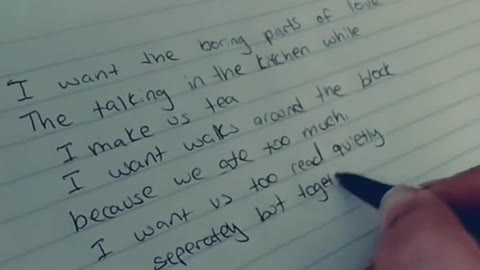 I want the boring parts of love
The talking in the kitchen while
I make us tea
I want walks around the block
because we ate too much.
I want us too read quietly
seperatly but toget